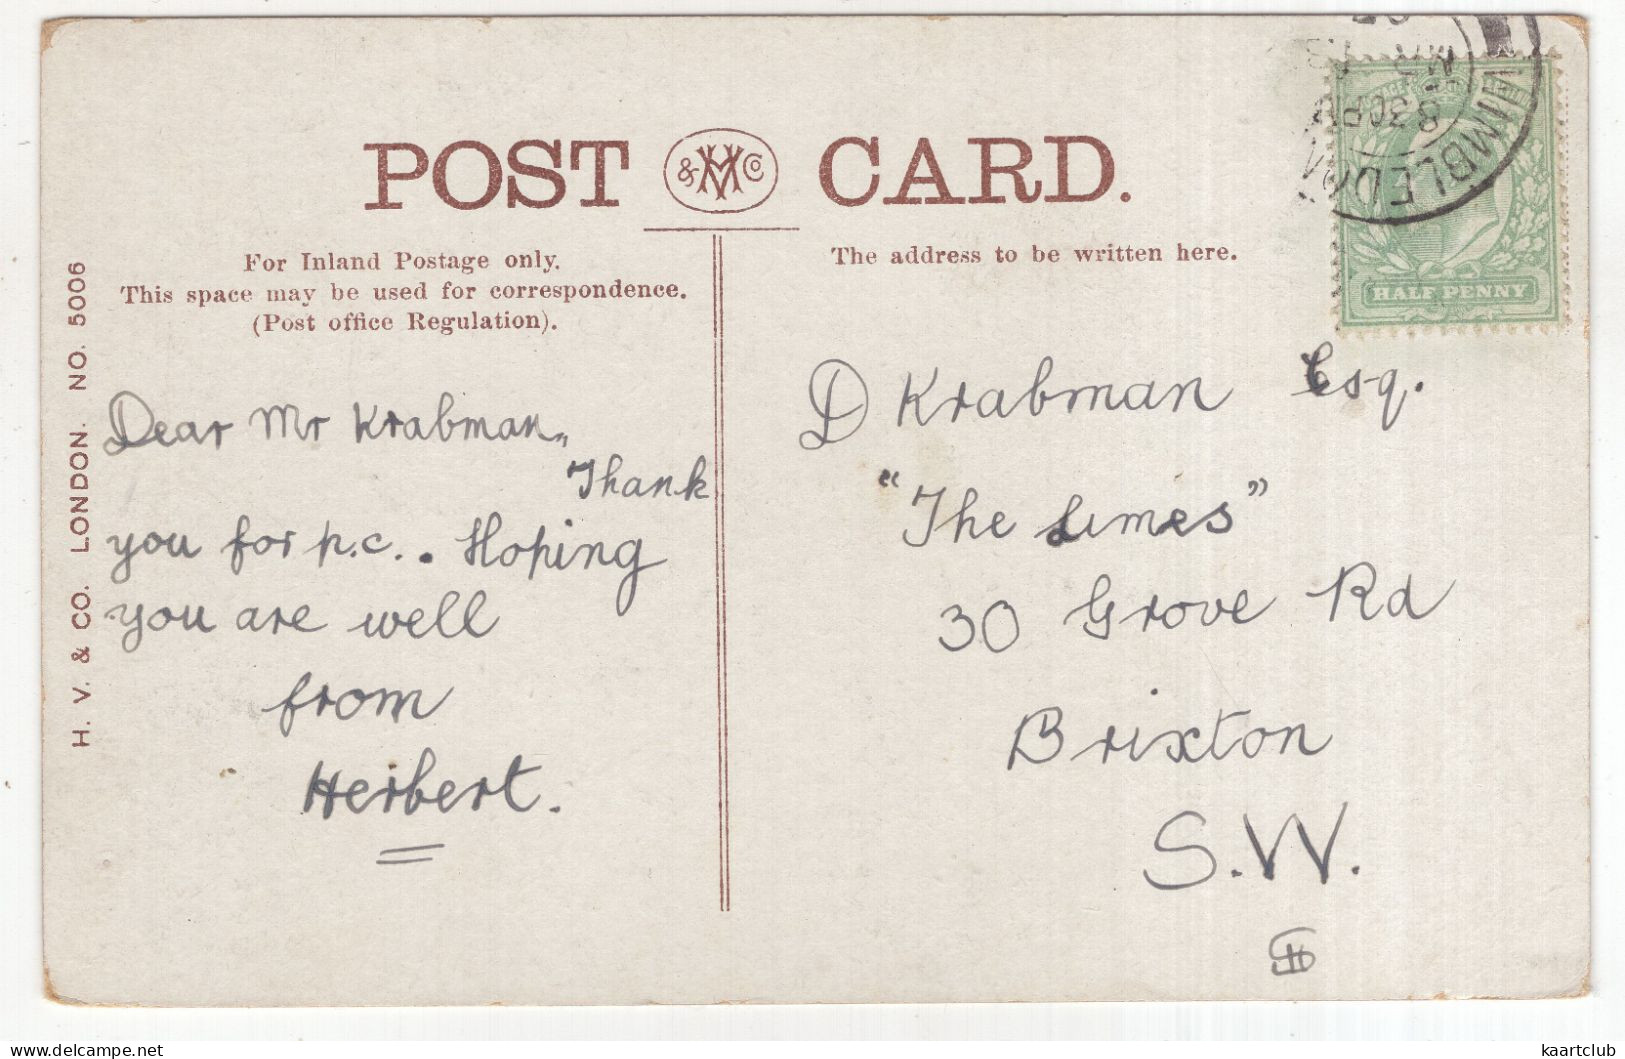 POST & HV Co CARD.
For Inland Postage only.
This space may be used for correspondence.
(Post office Regulation).
The address to be written here.
H. V. & CO. LONDON. NO. 5006
WIMBLEDON
8 30PM
HALF PENNY
Dear Mr Krabman,,
Thank
you for p.c.. . Hoping
you are well
from
Herbert.
D Krabman Esq.
"The Limes"
30 Grove Rd
Brixton
S.W.
kaartclub